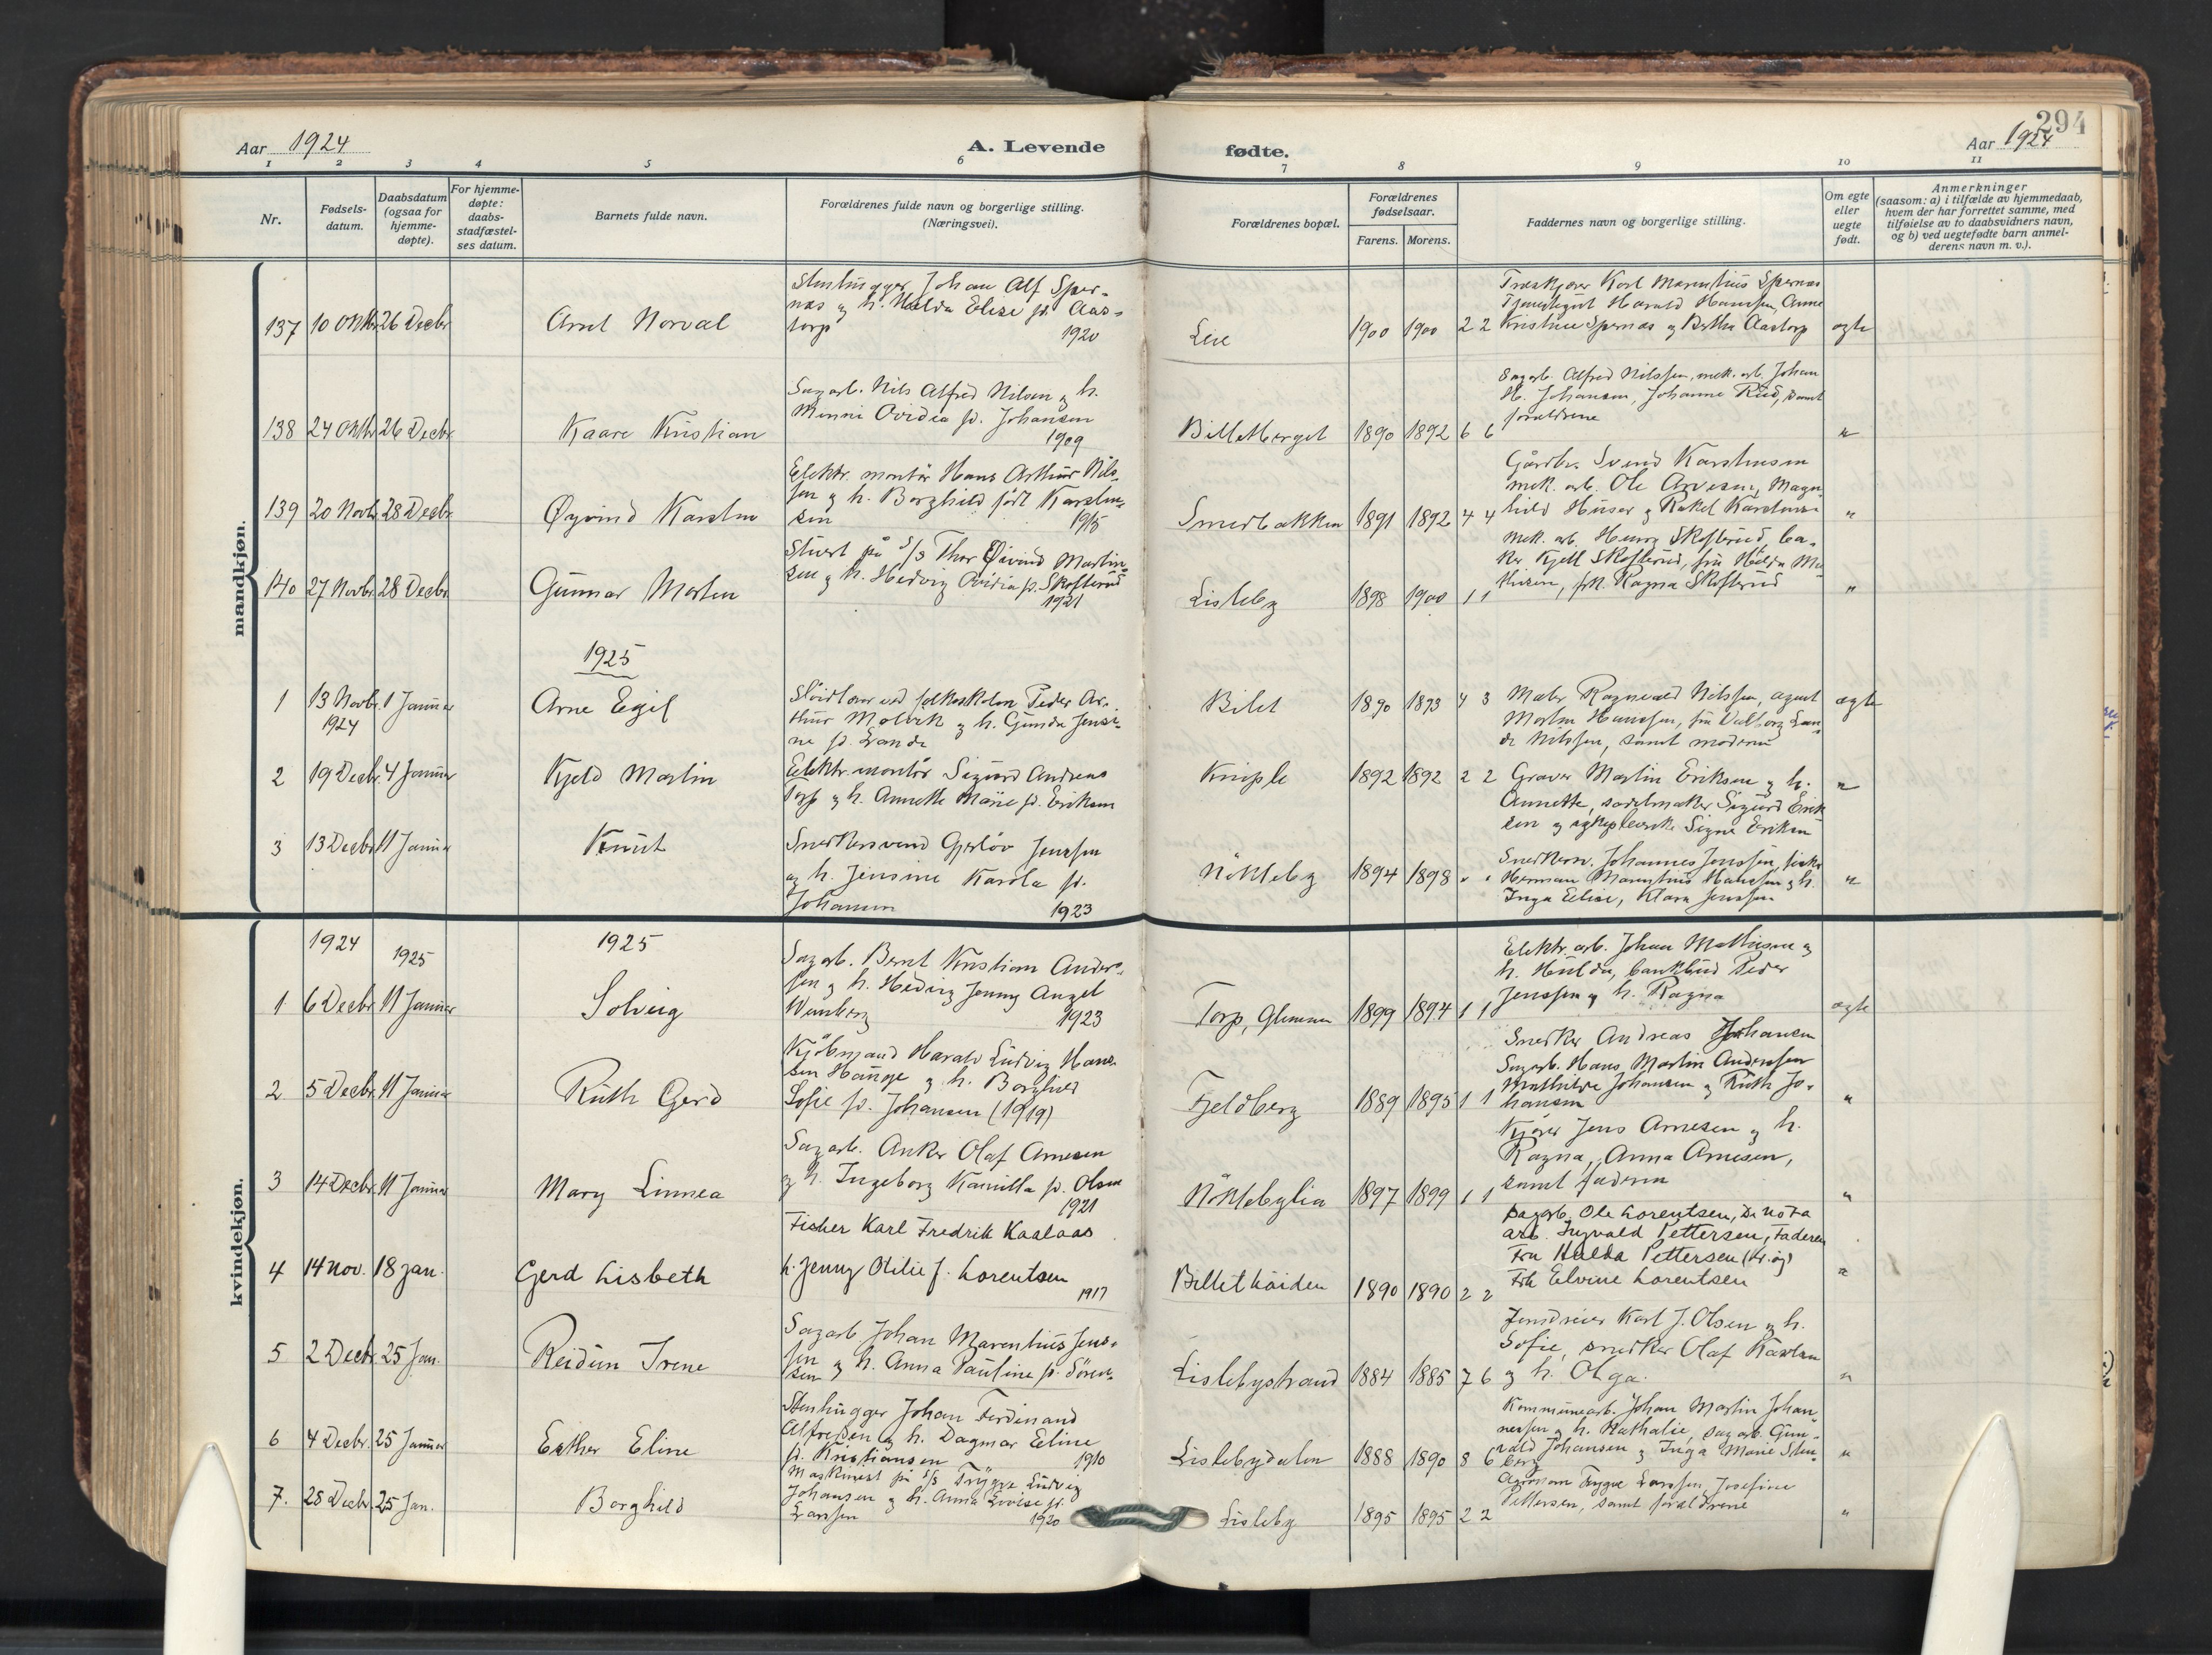 294
Aar 1924
A. Levende
fødte.
Aar 1924
1 2 3 4 5 6 7 8 9 10 11
Nr.
Fødsels-
datum.
Daabsdatum
(ogsaa for
hjemme-
døpte).
For hjemme-
døpte:
daabs-
stadfæstel-
ses datum.
Barnets fulde navn.
Forældrenes fulde navn og borgerlige stilling.
(Næringsvei).
Forældrenes bopæl.
Forældrenes
fødselsaar.
Farens. Morens.
Faddernes navn og borgerlige stilling.
Om egte
eller
uegte
født.
Anmerkninger
(saasom: a) i tilfælde av hjemmedaab,
hvem der har forrettet samme, med
tilføielse av to daabsvidners navn,
og b) ved uegtefødte barn anmel-
derens navn m. v.).
mandkjøn.
137 10 Oktbr 26 Decbr
Arnt Norval
Stenhugger Johan Alf Sper-
næs og h. Hulda Elise fd. Aas-
torp 1920
Lere
1900 1900 2 2
Karl Marenthius Spernæs
Harald Hanssen, Anne
Kristine Spernæs og Bertha Aastorp
egte
138 24 Oktbr 26 Decbr
Kaare Kristian
Sagarb. Nils Alfred Nilsen og h.
Minni Ovidia fd. Johansen
1909
Billetberget
1890 1892 6 6
Sagarb. Alfred Nilssen, mek. arb. Johan
H. Johansen, Johanne Rud, samt
forældrene
"
139 20 Novbr 28 Decbr
Øyvind Karsten
Elektr. montör Hans Arthur Nils-
sen og h. Borghild født Karsten-
sen 1915
Smedbakken
1891 1892 4 4
Gårdbr. Svend Karstensen
mek. arb. Ole Arvesen, Magn-
hild Huser og Rakel Karstensen
"
140 27 Novbr. 28 Decbr
Gunnar Morten
Stuert på S/S Thor Øivind Martin-
sen og h. Hedvig Ovidia fd. Skofterud
1921
Lisleby
1898 1900 1 1
Mek. arb. Henry Skofterud, ba-
ker Kjell Skofterud, fru Hulda Ma-
thisen, frk. Ragna Skofterud
"
1925
1 13 Novbr. 1 Januar
1924
Arne Egil
Slöidlærer ved folkeskolen Peder Ar-
thur Molvik og h. Gunda Jensi-
ne fd. Lande
Bilet
1890 1893 4 3
Maler Ragnvald Nilssen, agent
Morten Hanssen, fru Valborg Lan-
de Nilssen, samt moderen
egte
2 19 Decbr. 4 Januar
Kjeld Martin
Elektr. montör Sigurd Andreas
Torp og h. Annette Marie fd. Eriksen
Kniple
1892 1892 2 2
Graver Martin Eriksen og h.
Annette, sadelmaker Sigurd Erik-
sen og sykepleierske Signe Eriksen
"
3 13 Decbr 11 Januar
Knut
Snedkersvend Gerlöv Jenssen
og h. Jensine Karola fd.
Johansen 1923
Nöktleby
1894 1898 " "
Snedkersv. Johannes Jenssen, fisker
Herman Marentius Hanssen og h.
Inga Elise, Klara Jenssen
"
kvindekjøn.
1924 1925 1925
1 6 Decbr 11 Januar
Solveig
Sagarb. Bernt Kristian Anders-
sen og h. Hedvig Jenny Angel
Wenberg 1923
Torp, Glemmen
1899 1894 1 1
Elektr. arb. Johan Mathisen og
h. Hulda, bankbud Peder
Jenssen og h. Ragna
egte
2 5 Decbr. 11 Januar
Ruth Gerd
Kjöbmand Harald Ludvig Han-
sen Hauge og h. Borghild
Sofie fd. Johansen (1919)
Fjeldberg
1889 1895 1 1
Snedker Andreas Johansen
Sagarb. Hans Martin Anderssen
Mathilde Johansen og Ruth Jo-
hansen
"
3 14 Decbr. 11 Januar
Mary Linnea
Sagarb. Anker Olaf Arnesen
og h. Ingeborg Kamilla fd. Olsen
1921
Nöktlebylia
1897 1899 1 1
Kjører Jens Arnesen og h.
Ragna, Anna Arnesen,
samt faderen
"
4 14 Nov. 18 Jan.
Gerd Lisbeth
Fisker Karl Fredrik Kaalaas
h. Jenny Otilie f. Lorentsen
1917
Billethöiden
1890 1890 2 2
Sagarb. Ole Lorentsen, De Nofa
arb. Ingvald Pettersen, Faderen
Fru Hulda Pettersen
Frk Elvine Lorentsen
"
5 2 Decbr 25 Jan.
Reidun Irene
Sagarb. Johan Marenthius Jens-
sen og h. Anna Pauline fd. Sören-
sen
Lislebystrand
1884 1885 7 6
Karl J. Olsen og h.
Sofie, snedker Olaf Karlsen
og h. Olga.
"
6 4 Decbr. 25 Januar
Esther Eline
Stenhugger Johan Ferdinand
Alfredsen og h. Dagmar Eeline
fd. Kristiansen 1910
Lislebydalen
1888 1890 8 6
Kommunearb. Johan Martin Johan-
nessen og h. Nathalie, sagarb. Gun-
vald Johansen og Inga Marie Sten-
berg
"
7. 28 Decbr. 25 Jan.
Borghild
Maskinist på S/S Trygve Ludvig
Johansen og h. Anna Lovise fd.
Larssen 1920
Lisleby
1895 1895 2 2
Agronom Trygve Larssen, Josefine
Pettersen, samt forældrene
"